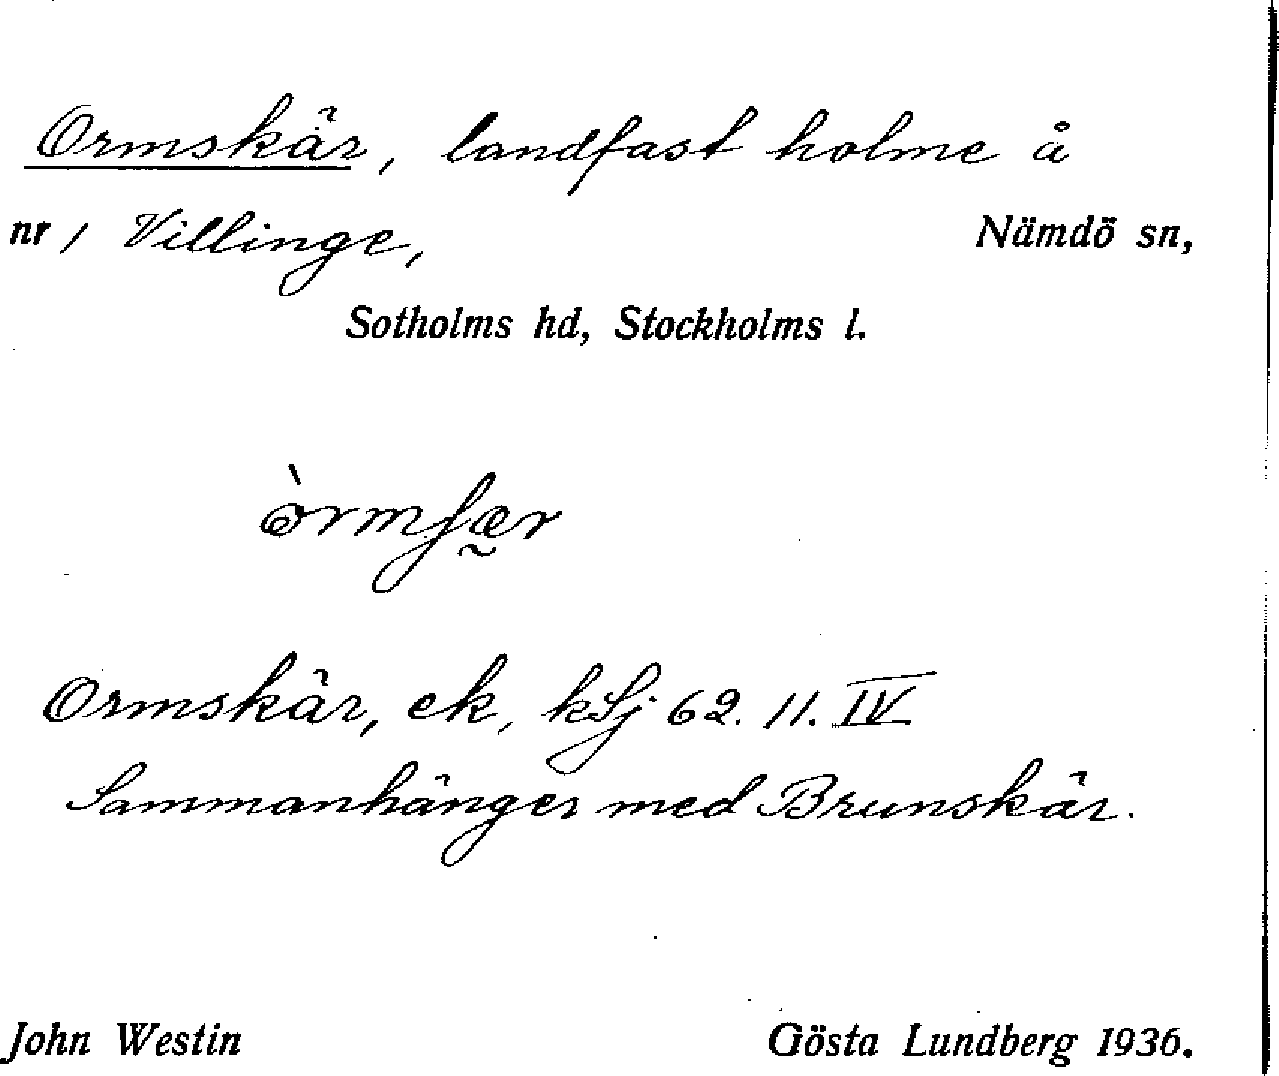 Ormskär, landfast holme å
nr 1 Villinge, Nämdö sn,
Sotholms hd, Stockholms l.
òrmʃær
Ormskär, ek, kSj 62. 11. IV
Sammanhänger med Brunskär.
John Westin Gösta Lundberg 1936.